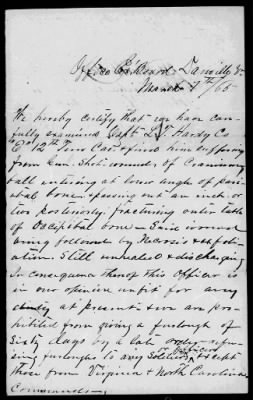 Office Ex Board Danville Va
March 7th/65
We hereby certify that we have care-
fully examined Capt L. J. Hardy Co
12th Tenn Cav. & find him suffering
from Gun Shot wound, of Cranium
ball entering at lower angle of parie-
tal bone & passing out an inch or
two posteriorly, fracturing outer table
of Occipital bone - Said wound
being followed by Necrosis & exfoli-
ation. Still unhealed & discharging
In consequence thereof this Officer is
in our opinion unfit for any
duty at present & we are pro-
hibited from giving a furlough of
Sixty days by a late order refu-
sing furloughs to any Soldiers or officers except
those from Virginia & North Carolina
Commands.